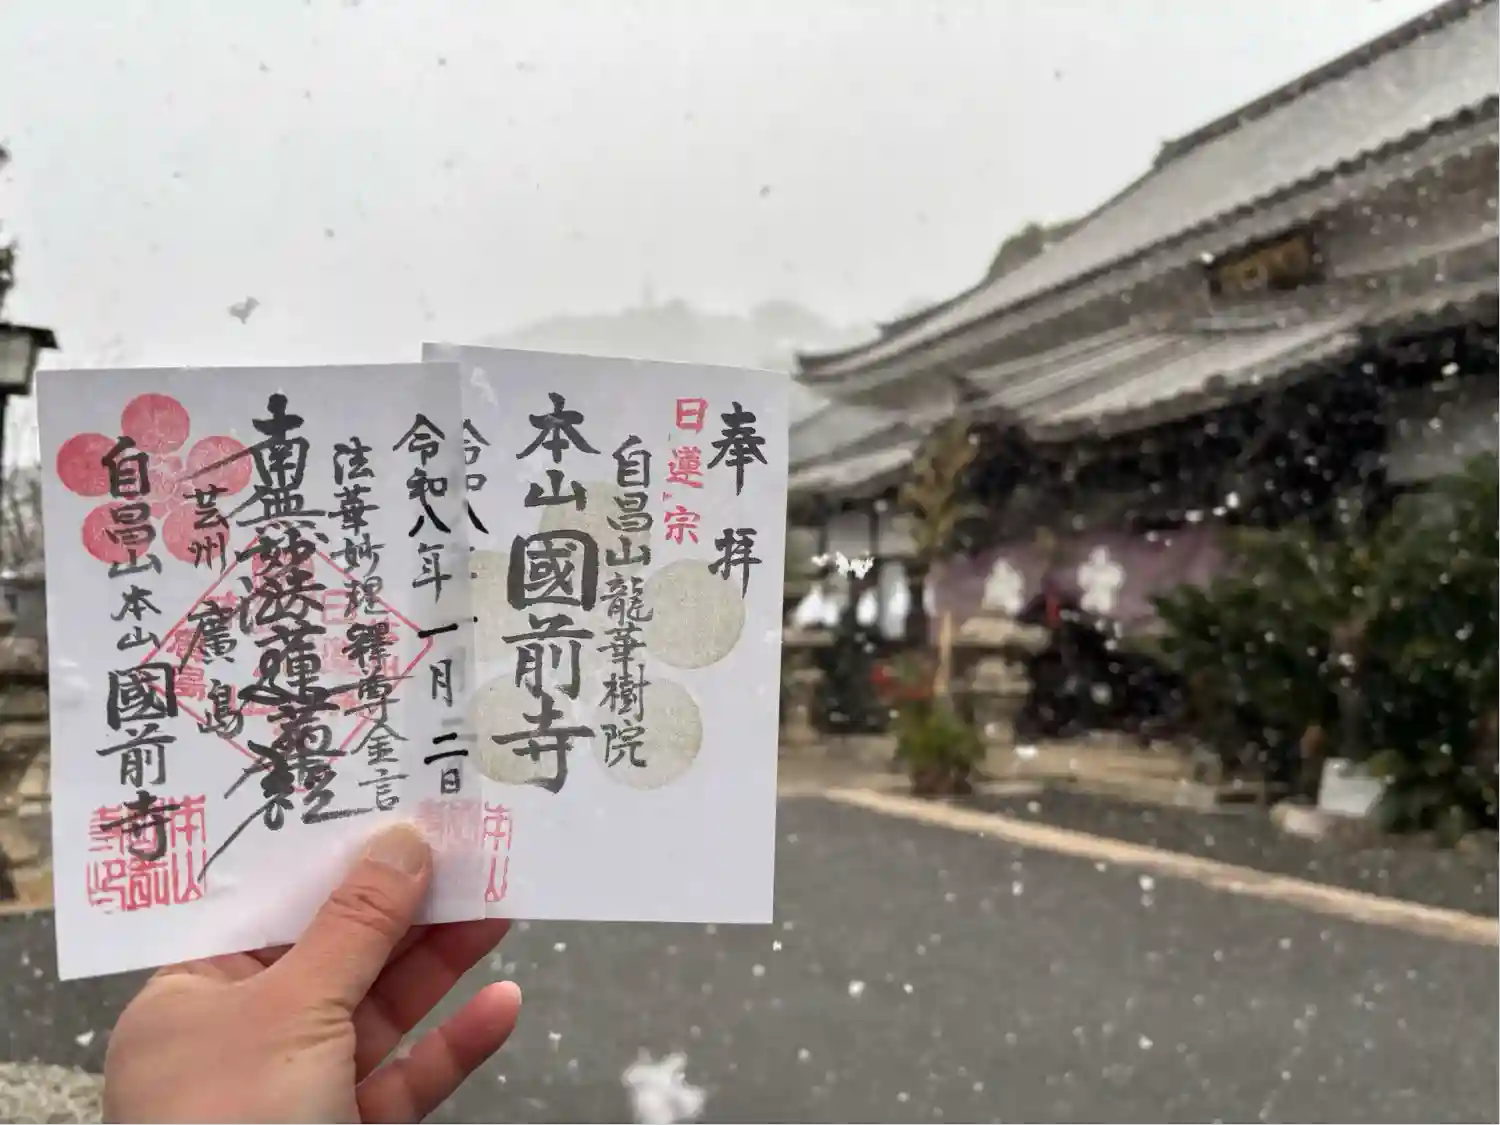 奉拝
日蓮宗
自昌山龍華樹院
本山國前寺
令和八年一月二日
法華妙理釋尊金言
南無妙法蓮華経
芸州廣島
自昌山本山國前寺